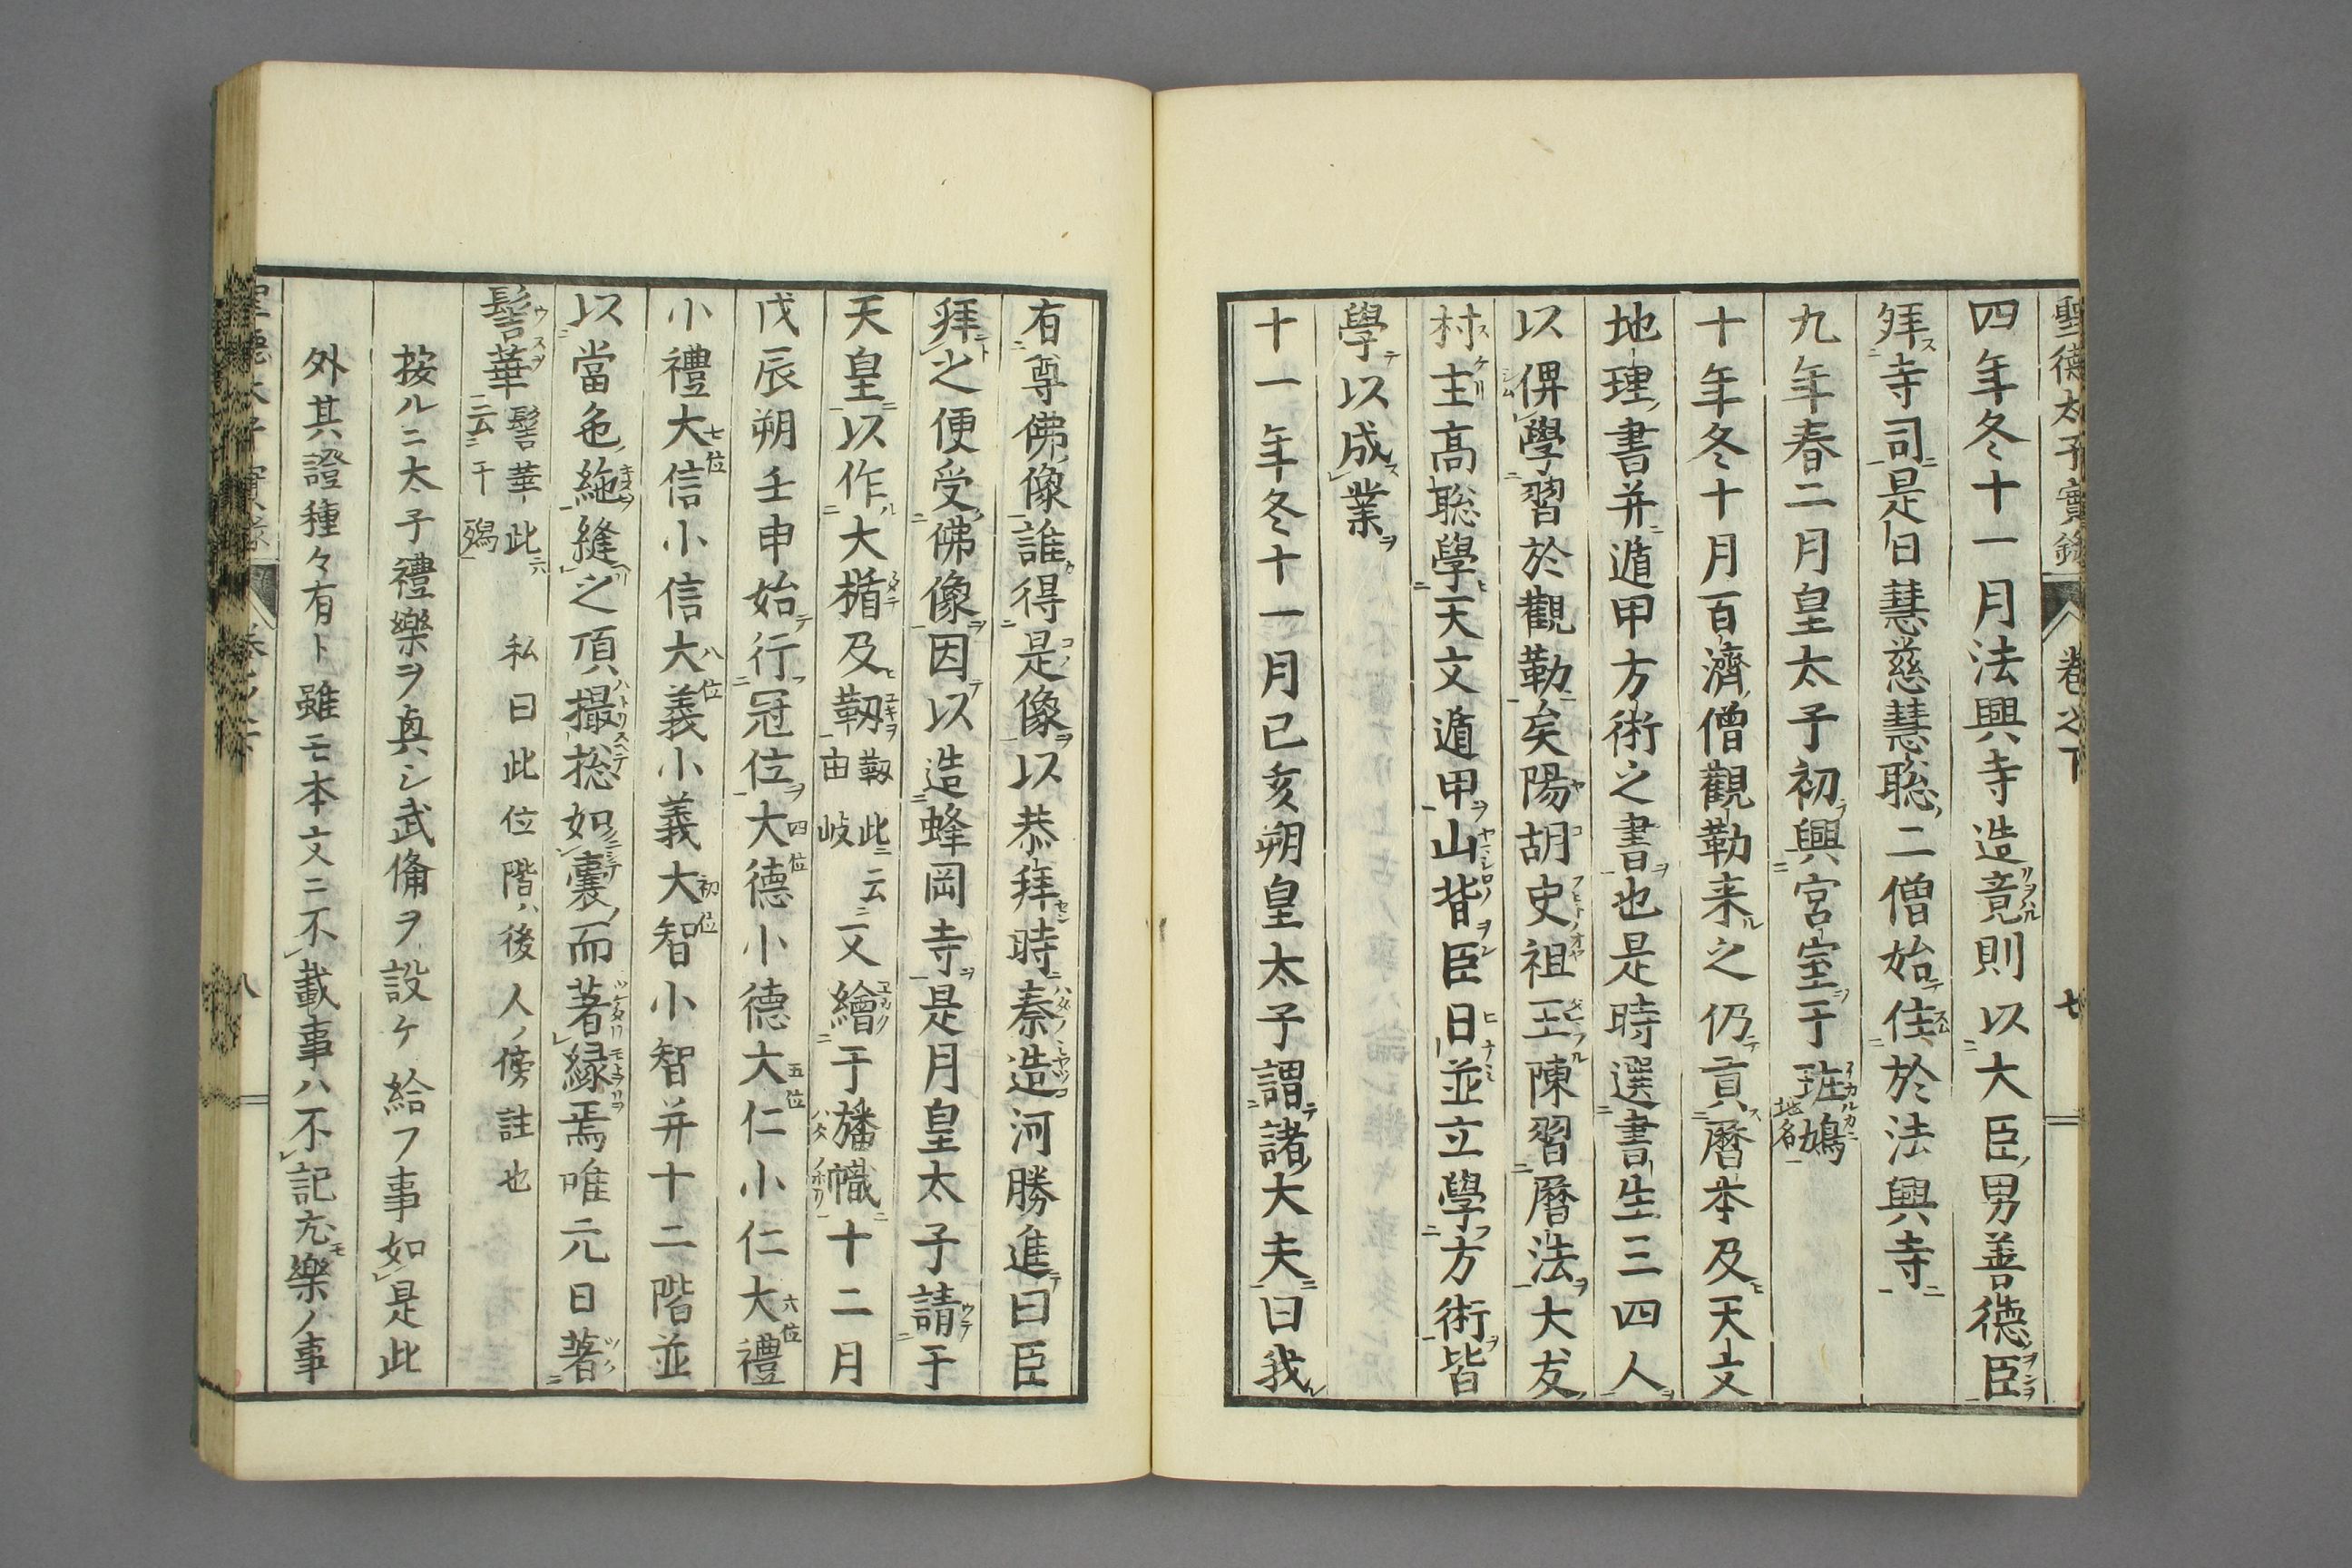 聖德太子實錄 卷之下 七
四年冬十一月法興寺造竟則以大臣男善德臣
拜寺司是日慧慈慧聡二僧始住於法興寺
九年春二月皇太子初興宮室于班鳩地名
十年冬十月百濟僧觀勒来之仍貢曆本及天文
地理書并遁甲方術之書也是時選書生三四人
以俾學習於觀勒矣陽胡史祖王陳習曆法大友
村主高聡學天文遁甲山背臣日並立學方術皆
學以成業
十一年冬十一月己亥朔皇太子謂諸大夫曰我
有尊佛像誰得是像以恭拜時秦造河勝進曰臣
拜之便受佛像因以造蜂岡寺是月皇太子請于
天皇以作大楯及靫靫此云由岐又繪于旛幟十二月
戊辰朔壬申始行冠位大德小德大仁小仁大禮
小禮大信小信大義小義大智小智并十二階並
以當色絁縫之頂撮捴如囊而著緑焉唯元日著
髻華髻華此云于孺 私曰此位階ハ後人ノ傍註也
按ルニ太子禮樂ヲ眞シ武俻ヲ設ケ給フ事如是此
外其證種々有ト雖モ本文ニ不載事ハ不記尤樂ノ事